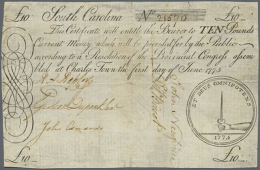 £10 South Carolina No. 21570 £10
This Certificate will entitle the Bearer to TEN Pounds
Current Money which will be provided for by the Publick
according to a Resolution of the Provincial Congress assem
bled at Charles Town the first day of June 1775
ET DEUS OMNIPOTENS
1775
£10 £10